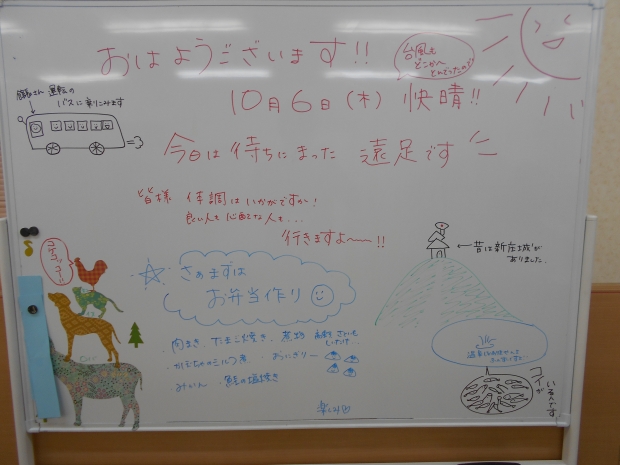 おはようございます!!
台風も
どこかへ
とんでったので
10月6日(木) 快晴!!
運転の
バスに乗りこみます
今日は待ちにまった 遠足です
皆様 体調はいかがですか!
良い人も心配な人も...
行きますよ～!!
昔は新庄城が
ありました。
コケコッコー!!
さぁまずは
お弁当作り
・肉まき ・たまご焼き ・煮物
・かぼちゃのミルク煮 ・おにぎり
・みかん ・鮭の塩焼き
コイが
いるんです